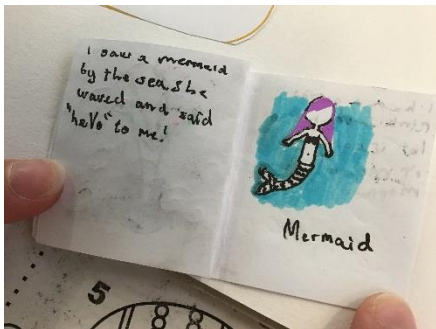 I saw a mermaid
by the sea. She
waved and said
"hello" to me!
Mermaid
5
8 8